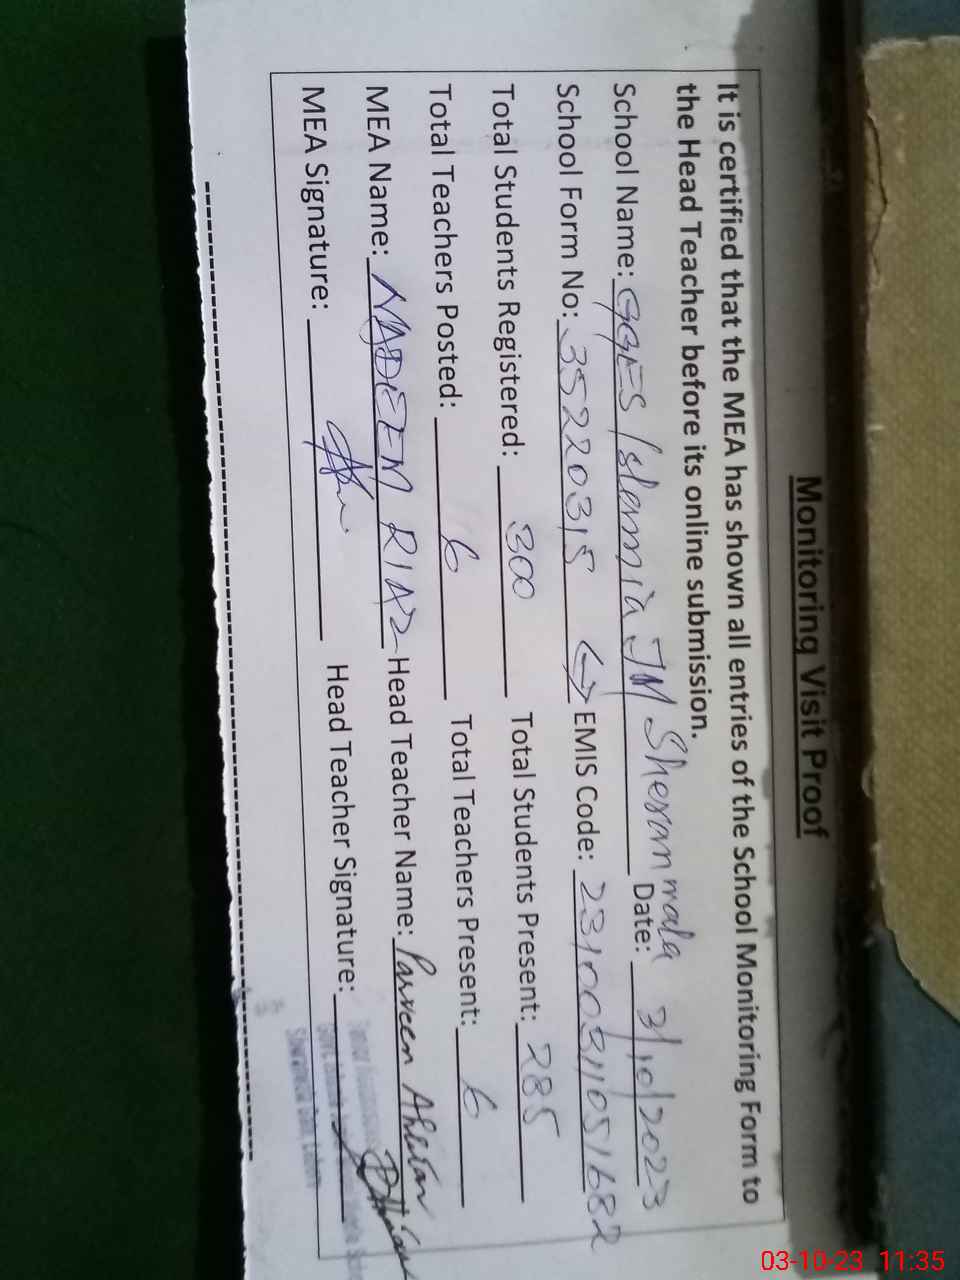 Monitoring Visit Proof
It is certified that the MEA has shown all entries of the School Monitoring Form to
the Head Teacher before its online submission.
School Name: GGES Islamia JM Sheranwala Date: 3/10/2023
School Form No: 35220315 EMIS Code: 23100311051682
Total Students Registered: 300 Total Students Present: 285
Total Teachers Posted: 6 Total Teachers Present: 6
MEA Name: NADEEM RIAZ Head Teacher Name: Parveen Akhtar
MEA Signature: Head Teacher Signature:
03-10-23 11:35